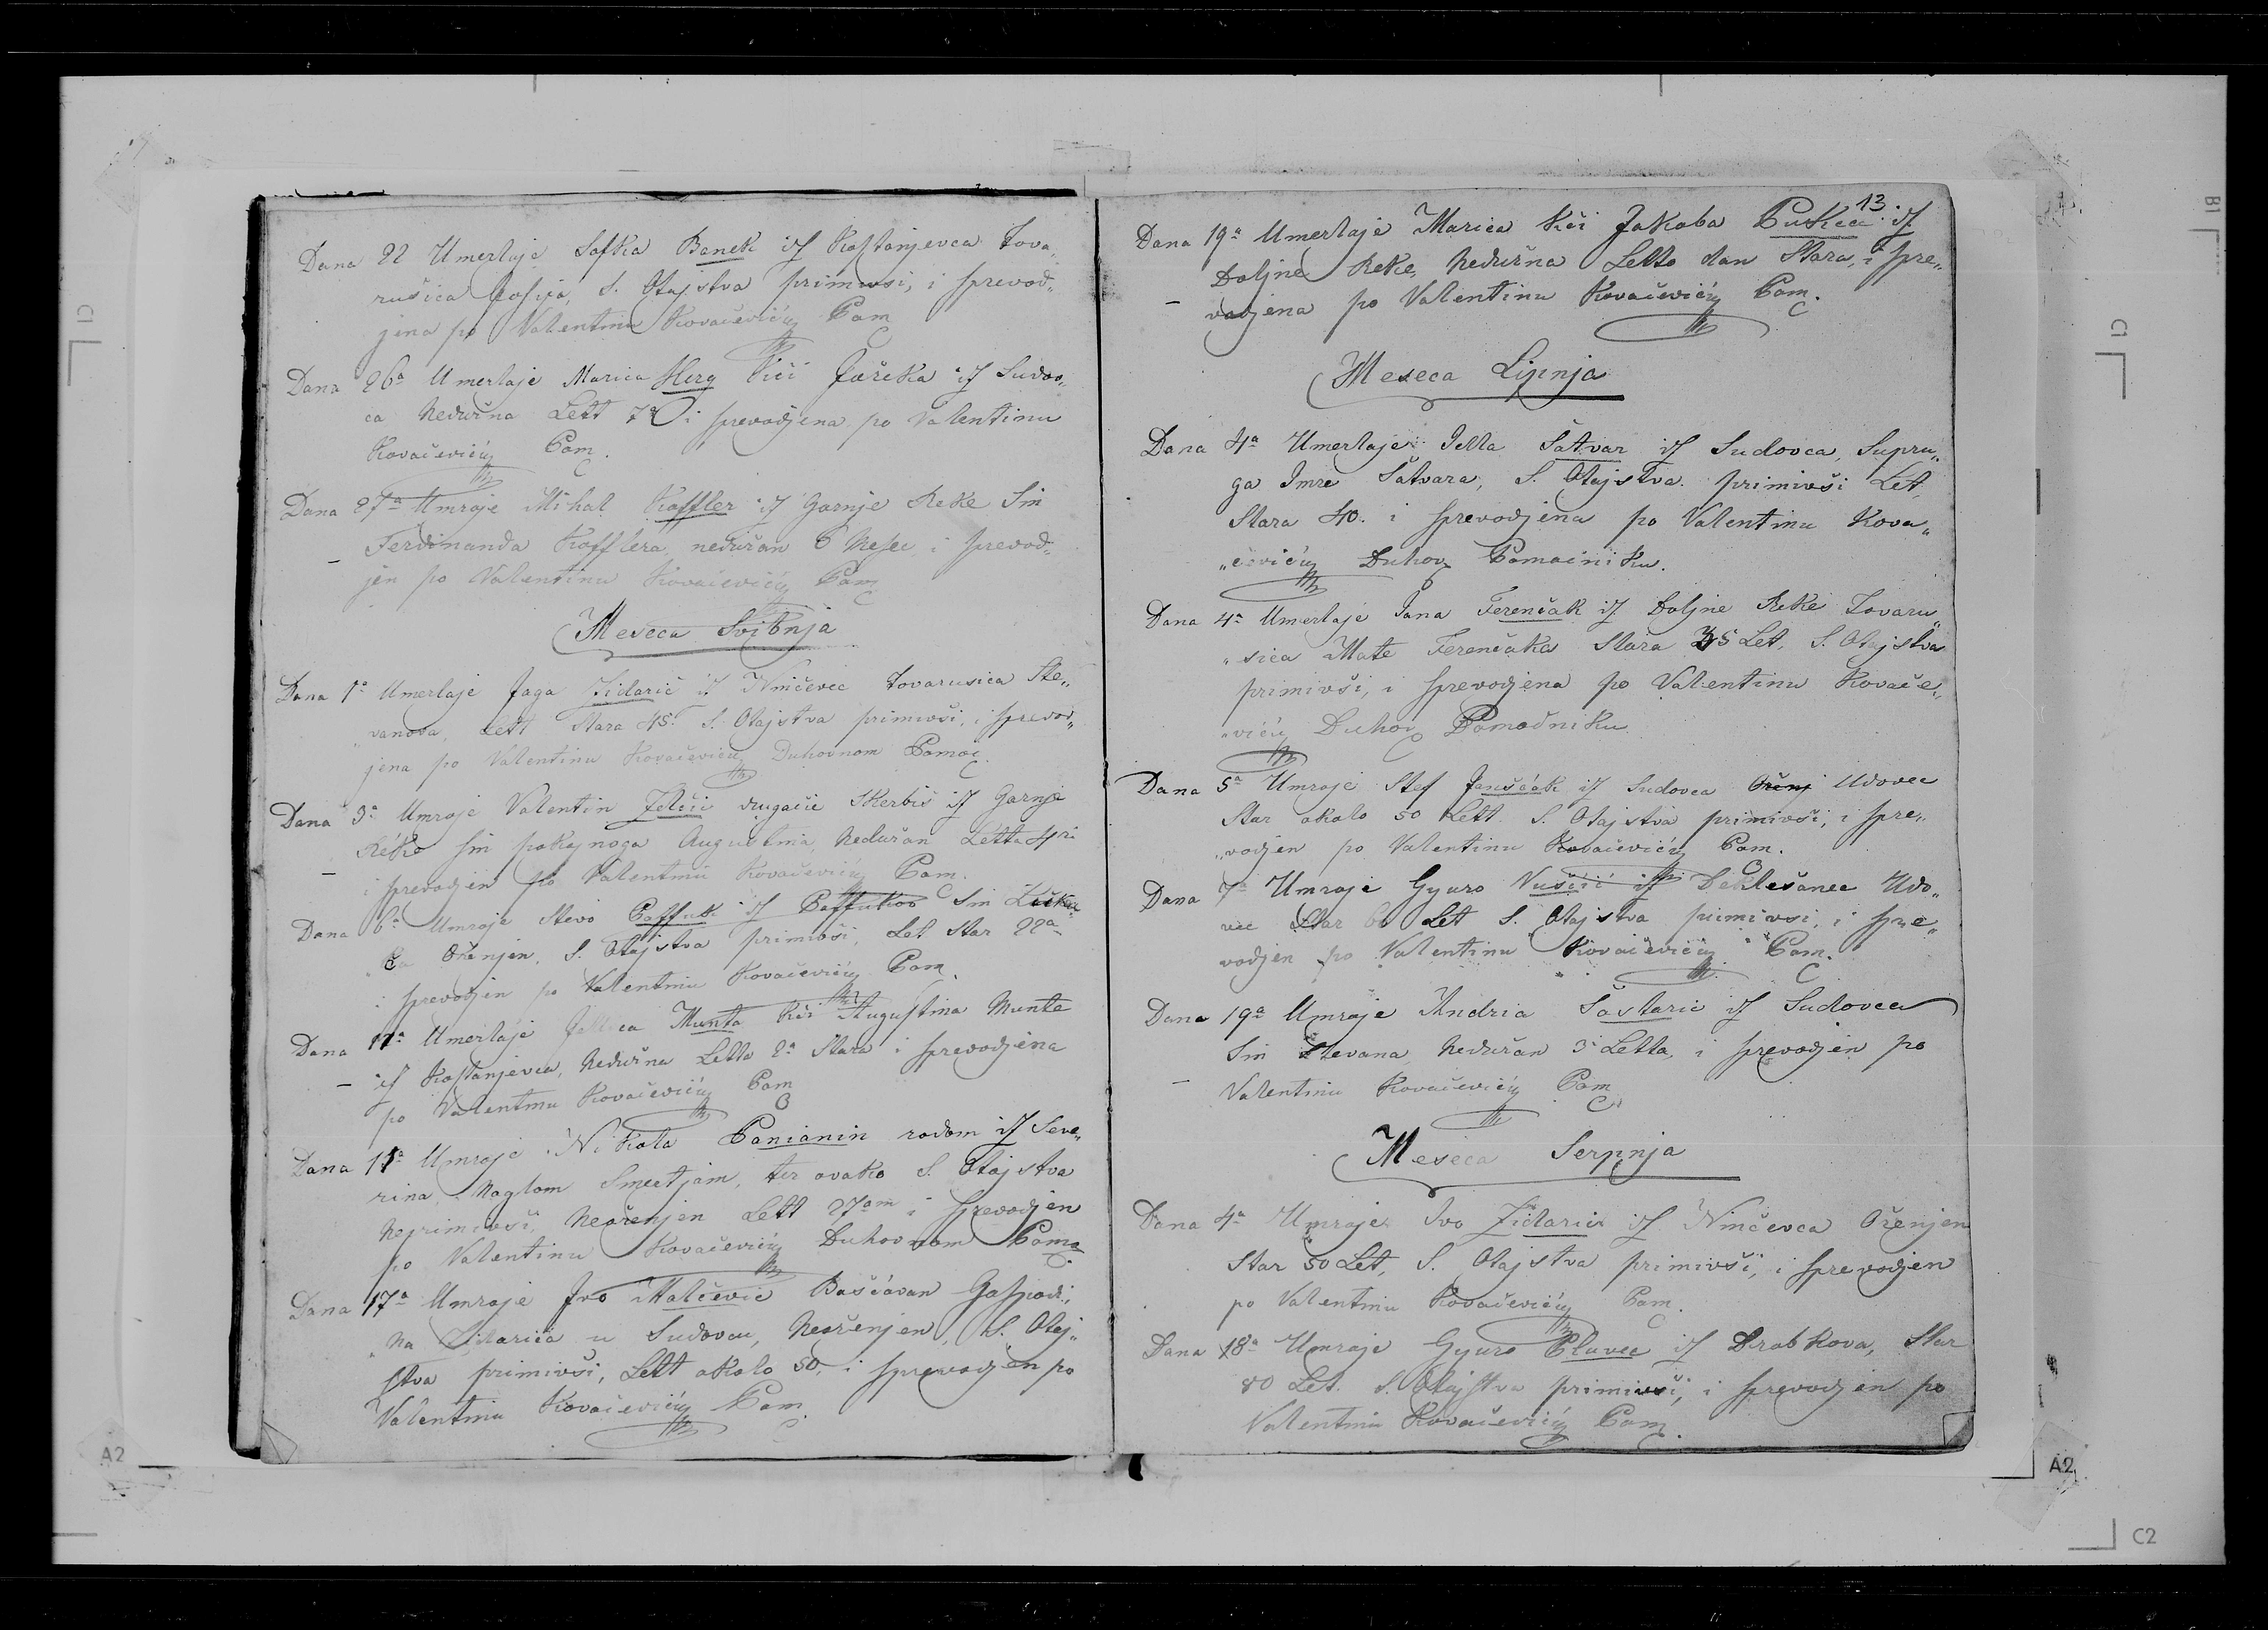 Dana 22 Umerlaje Safka Banek iz Kostanjevca Tova„
rušica Josipa, S. Otajstva primivsi, i sprevod„
jena po Valentinu Kovačeviću Pom
Dana 26a Umerlaje Marica Herg kći Jožeka iz Sudov„
ca Nedužna Lett 7 i sprevodjena po Valentinu
Kovačeviću Pom.
Dana 27a Umroje Mihal Koffler iz Gornje Reke Sin
Ferdinanda Kofflera, nedužan 6 Mesec, i sprevod„
jen po Valentinu Kovačeviću Pom
Meseca Svibnja
Dana 1a Umerlaje Jaga Zidarić iz Ninčevec tovarusica Ste„
„vanova, Lett Stara 45. S. Otajstva primivši, i sprevod„
jena po Valentinu Kovačeviću Duhovnom Pomoć
Dana 3a Umroje Valentin drugačie Skerbiš iz Gornje
Réke sin pokojnoga Augustina Nedužan Letta 4ri
i sprevodjen po Valentinu Kovačeviću Pom.
Dana 6a Umroje Stevo Paffuk iz Paffukov Sin
Oženjen, S. Otajstva primivši, Let star 22a
i sprevodjen po Valentinu Kovačeviću Pom.
Dana 11a Umerlaje Munta kći Augustina Munte
iz Kostanjevca, Nedužna Letta 2a Stara i sprevodjena
po Valentinu Kovačeviću Pom
Dana 11a Umroje Nikola Panianin rodom iz Seve„
rina, Naglom Smertjom, ter ovako S. Otajstva
Neprimivši, Neoženjen Lett 27am i sprevodjen
po Valentinu Kovačeviću Duhovnom Pomo
Dana 17a Umroje Ivo Malčević Baščovan Gospodi„
„na Zidarića u Sudovcu, Neoženjen, S. Otaj„
stva primivši, Lett okolo 50, i sprevodjen po
Valentinu Kovačeviću Pom.
13
Dana 19a Umerlaje Marica kći Jakoba Puškca iz
Doljne Reke, Nedužna Letto dan Stara, i spre„
vodjena po Valentinu Kovačeviću Pom.
Meseca Lipnja
Dana 4a Umerlaje Jella Šatvar iz Sudovca, Supru„
ga Imre Šatvara, S. Otajstva primivši Let,
Stara 40. i sprevodjena po Valentinu Kova„
„čeviću Duhov Pomoćniku.
Dana 4a Umerlaje Jana Ferenčak iz Doljne Reke Tovaru„
„sica Mate Ferenčaka Stara 35 Let, S. Otajstva
primivši, i sprevodjena po Valentinu Kovače„
„viću Duhov Pomoćniku.
Dana 5a Umroje Stef Janščák iz Sudovca Oženj Udovec
Star okolo 50 Lett. S. Otajstva primivši, i spre„
„vodjen po Valentinu Kovačeviću Pom.
Dana 7a Umroje Gyuro Vuščić iz Deklešanec Udo„
vec Star Let S. Otajstva primivsi, i spre„
vodjen po Valentinu Kovačeviću Pom.
Dana 19a Umroje Andria Šostarić iz Sudovca
Sin Stevana, Nedužan 3 Letta, i sprevodjen po
Valentinu Kovačeviću Pom
Meseca Serpnja
Dana 4a Umroje Ivo Zidarić iz Ninčevca Oženjen
Star 50 Let, S. Otajstva primivši, i sprevodjen
po Valentinu Kovačeviću Pom.
Dana 18a Umroje Gyuro Pluvec iz Drobkova, Star
80 Let. S. Otajstva primivši, i sprevodjen po
Valentinu Kovačeviću Pom.
C1
A2
B1
C1
A2
C2